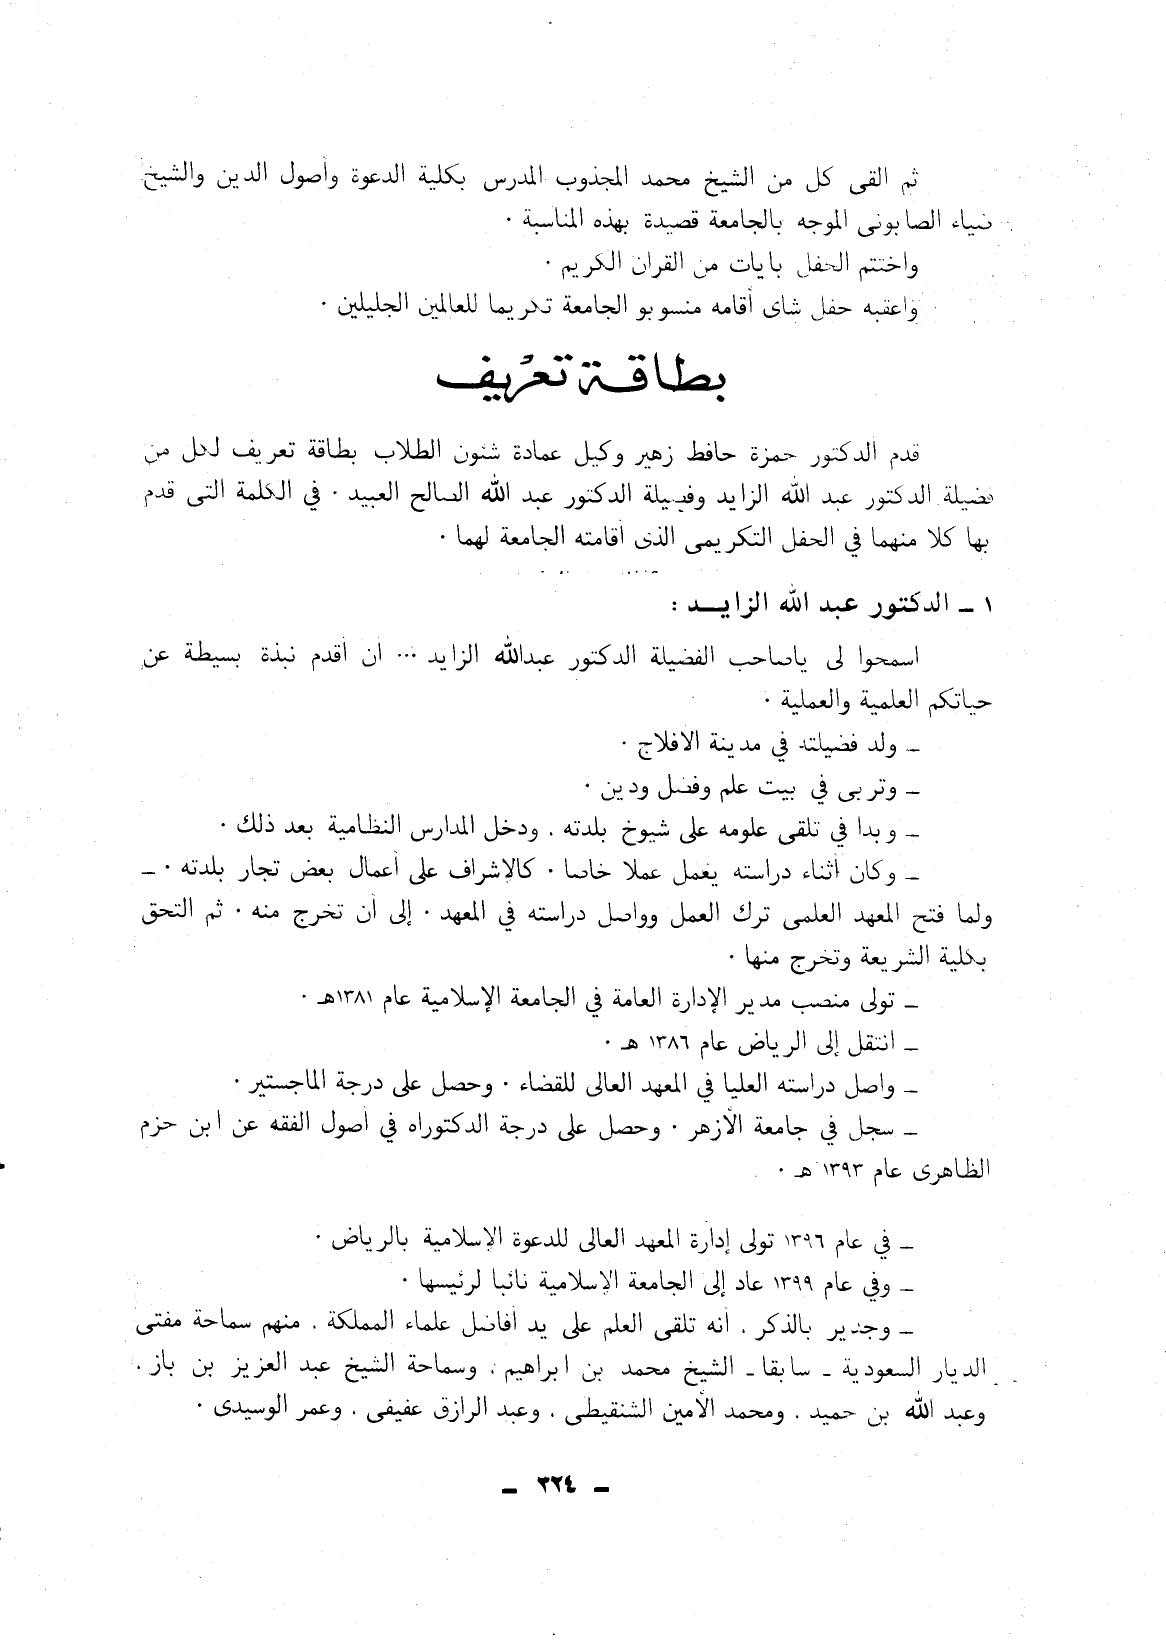 ثم القى كل من الشيخ محمد المجذوب المدرس بكلية الدعوة وأصول الدين والشيخ
ضياء الصابونى الموجه بالجامعة قصيدة بهذه المناسبة .
واختتم الحفل بايات من القران الكريم .
واعقبه حفل شاى أقامه منسوبو الجامعة تكريما للعالمين الجليلين .
بطاقة تعريف
قدم الدكتور حمزة حافظ زهير وكيل عمادة شئون الطلاب بطاقة تعريف لكل من
فضيلة الدكتور عبد الله الزايد وفضيلة الدكتور عبد الله الصالح العبيد . في الكلمة التى قدم
بها كلا منهما في الحفل التكريمى الذى أقامته الجامعة لهما .
١ ـ الدكتور عبد الله الزايـــد :
اسمحوا لى ياصاحب الفضيلة الدكتور عبدالله الزايد ... أن أقدم نبذة بسيطة عن
حياتكم العلمية والعملية .
ـ ولد فضيلته في مدينة الافلاج .
ـ وتربى في بيت علم وفضل ودين .
ـ وبدا في تلقى علومه على شيوخ بلدته . ودخل المدارس النظامية بعد ذلك .
ـ وكان أثناء دراسته يعمل عملا خاصا . كالإشراف على أعمال بعض تجار بلدته . ـ
ولما فتح المعهد العلمى ترك العمل وواصل دراسته في المعهد . إلى أن تخرج منه . ثم التحق
بكلية الشريعة وتخرج منها .
ـ تولى منصب مدير الإدارة العامة في الجامعة الإسلامية عام ١٣٨١هـ .
ـ انتقل إلى الرياض عام ١٣٨٦ هـ .
ـ واصل دراسته العليا في المعهد العالى للقضاء . وحصل على درجة الماجستير .
ـ سجل في جامعة الأزهر . وحصل على درجة الدكتوراه في أصول الفقه عن ابن حزم
الظاهرى عام ١٣٩٣ هـ .
ـ في عام ١٣٩٦ تولى إدارة المعهد العالى للدعوة الإسلامية بالرياض .
ـ وفي عام ١٣٩٩ عاد إلى الجامعة الإسلامية نائبا لرئيسها .
ـ وجدير بالذكر . أنه تلقى العلم على يد أفاضل علماء المملكة . منهم سماحة مفتى
الديار السعودية ـ سابقا ـ الشيخ محمد بن ابراهيم . وسماحة الشيخ عبد العزيز بن باز .
وعبد الله بن حميد . ومحمد الأمين الشنقيطى . وعبد الرازق عفيفى . وعمر الوسيدى .
ـ ٢٢٤ ـ